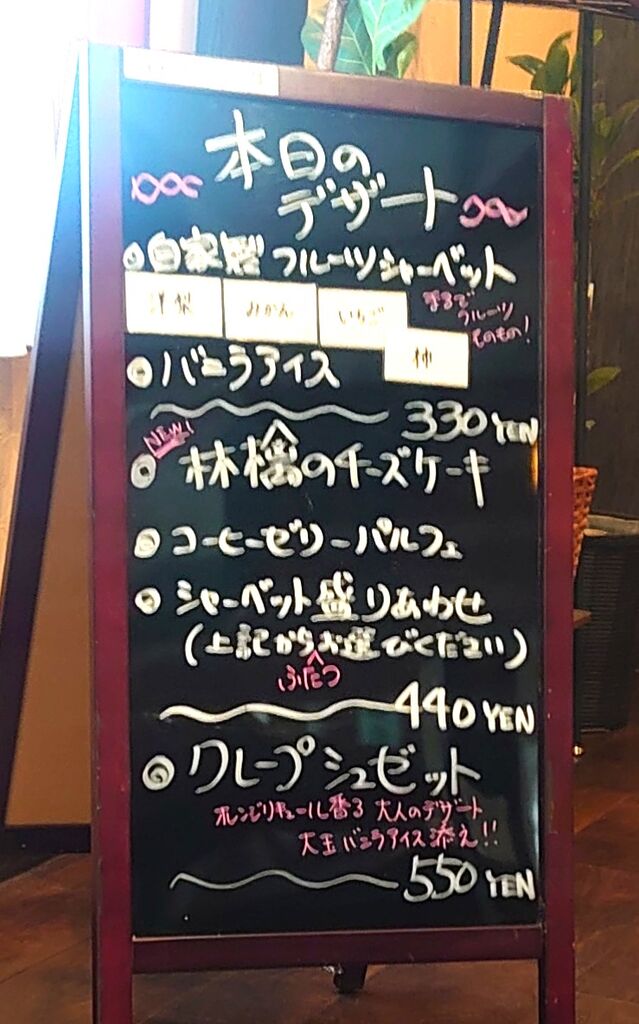 本日の
デザート
◎自家製 フルーツシャーベット
洋梨 みかん いちご 柿
まるで
フルーツ
そのもの!
◎バニラアイス
330 YEN
NEW!
◎林檎のチーズケーキ
◎コーヒーゼリーパルフェ
◎シャーベット盛りあわせ
(上記からお選びください)
ふたつ
440 YEN
◎クレープシュゼット
オレンジリキュール香る 大人のデザート
大玉バニラアイス添え!!
550 YEN